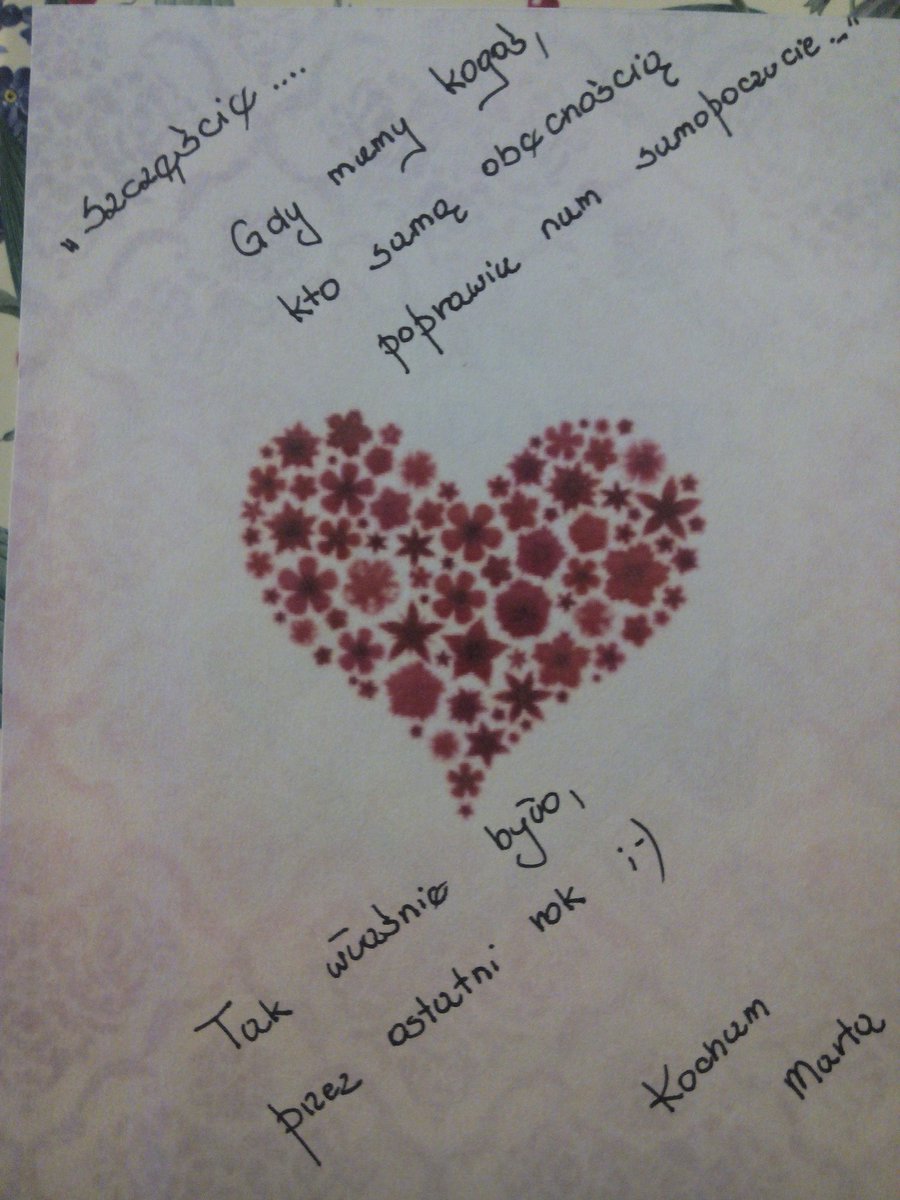 „Szczęście....
Gdy mamy kogoś,
kto samą obecnością
poprawia nam samopoczucie..."
Tak właśnie było,
przez ostatni rok ;-)
Kocham
Marta